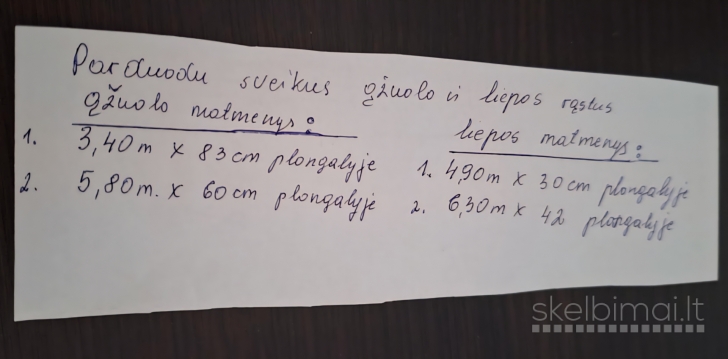 Parduodu sveikus ąžuolo ir liepos rąstus
ąžuolo matmenys:
1. 3,40m x 83cm plongalyje
2. 5,80m. x 60cm plongalyje
liepos matmenys:
1. 4,90m x 30cm plongalyje
2. 6,30m x 42 plongalyje
skelbimai.lt